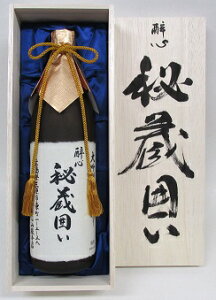 大吟醸
酔心
秘蔵囲い
酔心
秘蔵囲い